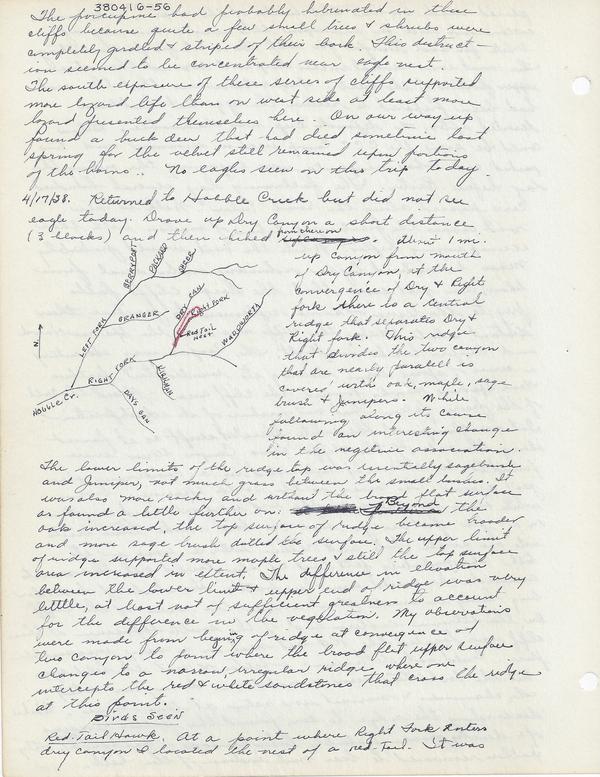 380416-56
The porcupine had probably hibernated in these
cliffs because quite a few small trees & shrubs were
completely girdled & striped of their bark. This destruct-
ion seemed to be concentrated near eagle nest.
The south exposure of these series of cliffs supported
more lizard life than on west side at least more
lizard presented themselves here. On our way up
found a buck deer that had died sometime last
spring for the velvet still remained upon portions
of the horns. No eagles seen on this trip today.
4/17/38. Returned to Hobble Creek but did not see
eagle today. Drove up Dry Canyon a short distance
(3 blocks) and then hiked from there on. About 1 mi.
up canyon from mouth
of Dry Canyon, at the
convergence of Dry & Right
fork there is a central
ridge that separates Dry &
Right fork. This ridge
that divides the two canyon
that are nearly paralell is
covered with oak, maple, sage
brush & Junipers. While
following along its course
found an interesting change
in the vegetative association.
BERRYPORT
PACKARD
SHEEP
DRY CAN
RIGHT FORK
GRANGER
LEFT FORK
RED TAIL
NEST
WADSWORTH
N
RIGHT FORK
KIRKMAN
DAYS CAN
HOBBLE Cr.
The lower limits of the ridge top was mentally sagebrush
and Juniper, not much grass between the small bushes. It
was also more rocky and without the broad flat surface
as found a little further on. Beyond the
oak increased, the top surface of ridge became broader
and more sage brush dotted the surface. The upper limit
of ridge supported more maple trees & still the top surface
area increased in extent. The difference in elevation
between the lower limit & upper end of ridge was very
little, at least not of sufficient greatness to account
for the difference in the vegetation. My observations
were made from begining of ridge at convergence of
two canyon to point where the broad flat upper surface
changes to a narrow, irregular ridge where one
intercepts the red & white sandstones that cross the ridge
at this point.
Birds Seen
Red-Tail Hawk. At a point where Right Fork enters
dry canyon I located the nest of a red-tail. It was